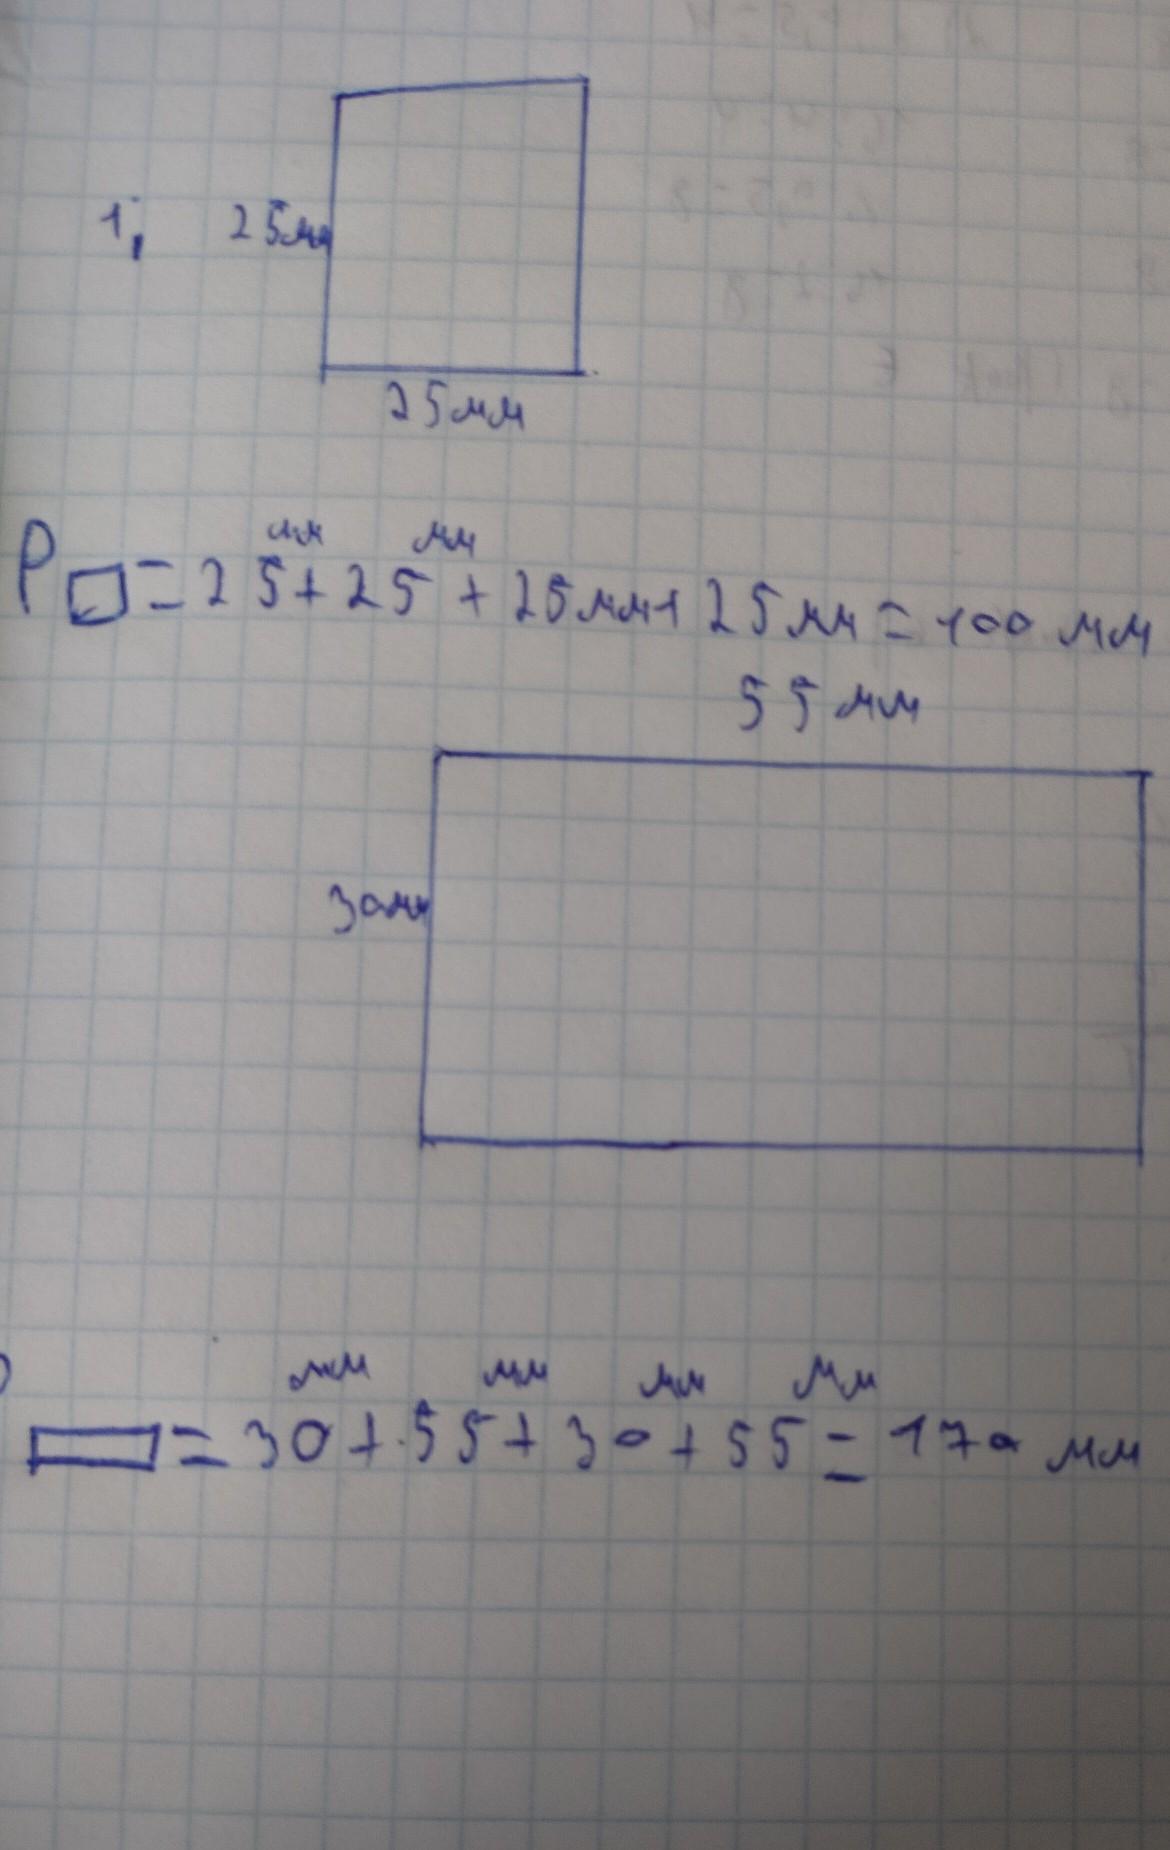 1; 25мм
25мм
P▭ = 25 мм + 25 мм + 25мм + 25 мм = 100 мм
55 мм
30мм
▭ = 30 мм + 55 мм + 30 мм + 55 мм = 170 мм